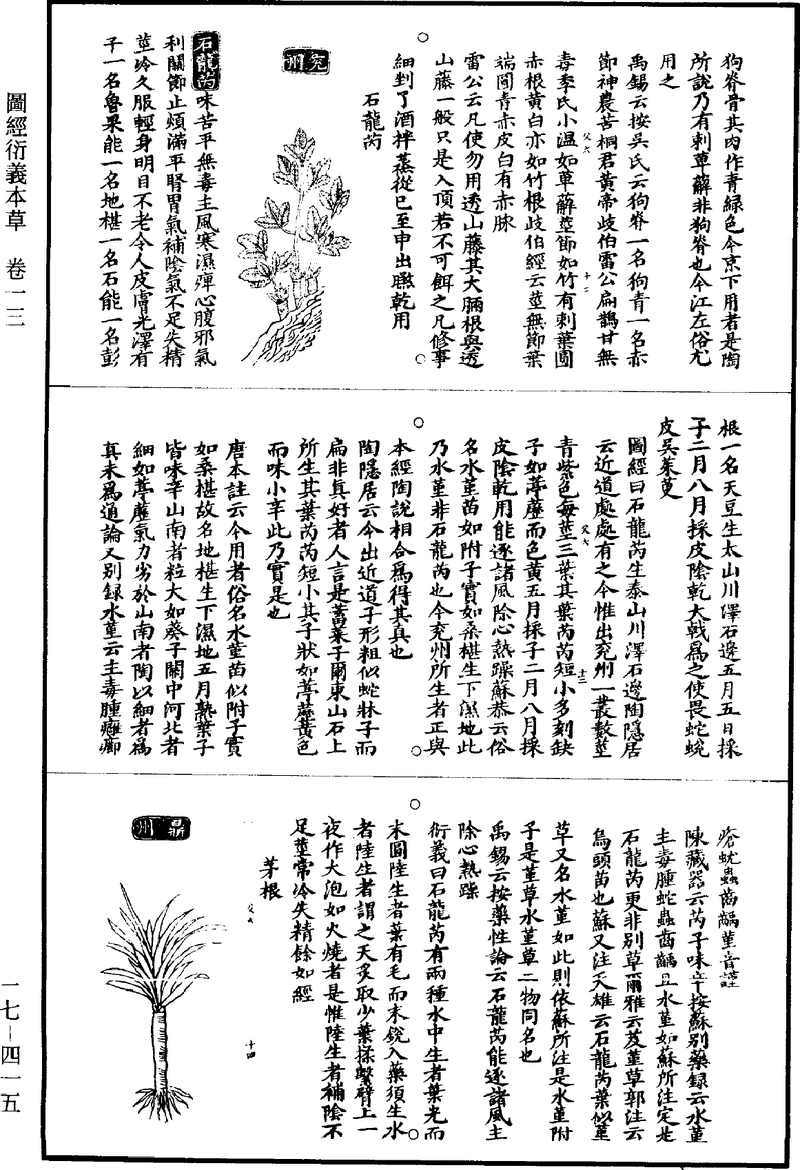 圖經衍義本草　卷一三
狗脊骨其肉作青綠色今京下用者是陶
所說乃有刺萆薢非狗脊也今江左俗尤
用之
禹錫云按吳氏云狗脊一名狗青一名赤
節神農苦桐君黃帝歧伯雷公扁鵲甘無
毒季氏小溫如萆薢莖節如竹有刺葉圓
赤根黃白亦如竹根歧伯經云莖無節葉
端圓青赤皮白有赤脉
雷公云凡使勿用透山藤其大腡根與透
山藤一般只是入頂若不可餌之凡修事
細剉了酒拌蒸從巳至申出曬乾用
石龍芮
兗州
石龍芮味苦平無毒主風寒濕痹心腹邪氣
利關節止煩滿平腎胃氣補陰氣不足失精
莖冷久服輕身明目不老令人皮膚光澤有
子一名魯果能一名地椹一名石能一名彭
根一名天豆生太山川澤石邊五月五日採
子二月八月採皮陰乾大戟為之使畏蛇蛻
皮吳茱萸
圖經曰石龍芮生泰山川澤石邊陶隱居
云近道處處有之今惟出兗州一叢數莖
青紫色每莖三葉其葉芮芮短小多刻缺
子如葶藶而色黃五月採子二月八月採
皮陰乾用能逐諸風除心熱躁蘇恭云俗
名水堇苗如附子實如桑椹生下濕地此
乃水堇非石龍芮也今兗州所生者正與
本經陶說相合為得其真也
陶隱居云今出近道子形粗似蛇牀子而
扁非真好者人言是蓄菜子爾東山石上
所生其葉芮芮短小其子狀如葶藶黃色
而味小辛此乃實是也
唐本註云今用者俗名水堇苗似附子實
如桑椹故名地椹生下濕地五月熟葉子
皆味辛山南者粒大如葵子關中河北者
細如葶藶氣力劣於山南者陶以細者為
真未為通論又別錄水堇云主毒腫癰癤
瘡蚘蟲齒齲堇音謹
陳藏器云芮子味辛按蘇別藥錄云水堇
主毒腫蛇蟲齒齲且水堇如蘇所注定是
石龍芮更非別草爾雅云芨堇草郭注云
烏頭苗也蘇又注天雄云石龍芮葉似堇
草又名水堇如此則依蘇所注是水堇附
子是堇草水堇草二物同名也
禹錫云按藥性論云石龍芮能逐諸風主
除心熱躁
衍義曰石龍芮有兩種水中生者葉光而
末圓陸生者葉有毛而末銳入藥須生水
者陸生者謂之天灸取少葉揉繫臂上一
夜作大泡如火燒者是惟陸生者補陰不
足莖常冷失精餘如經
茅根
鼎州
一七—四一五